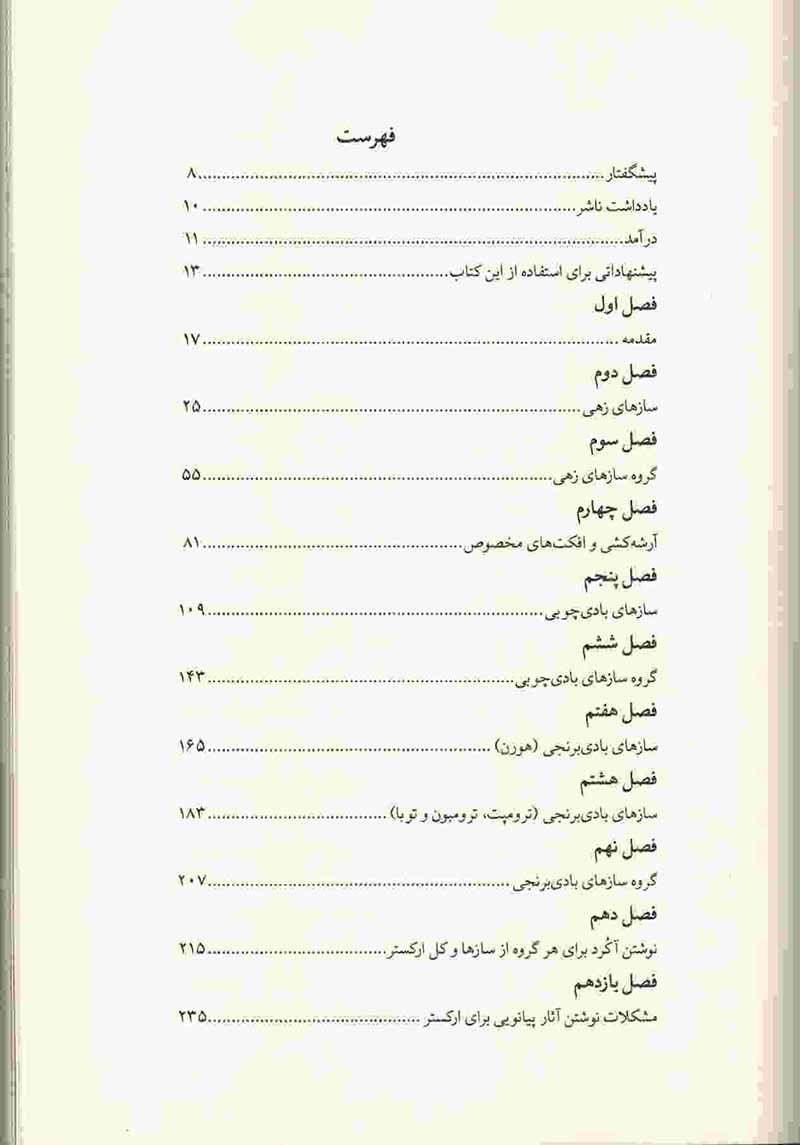 فهرست
پیشگفتار ........ ۸
یادداشت ناشر ........ ۱۰
درآمد ........ ۱۱
پیشنهاداتی برای استفاده از این کتاب ........ ۱۳
فصل اول
مقدمه ........ ۱۷
فصل دوم
سازهای زهی ........ ۲۵
فصل سوم
گروه سازهای زهی ........ ۵۵
فصل چهارم
آرشه‌کشی و افکت‌های مخصوص ........ ۸۱
فصل پنجم
سازهای بادی‌چوبی ........ ۱۰۹
فصل ششم
گروه سازهای بادی‌چوبی ........ ۱۴۳
فصل هفتم
سازهای بادی‌برنجی (هورن) ........ ۱۶۵
فصل هشتم
سازهای بادی‌برنجی (ترومپت، ترومبون و توبا) ........ ۱۸۳
فصل نهم
گروه سازهای بادی‌برنجی ........ ۲۰۷
فصل دهم
نوشتن آکُرد برای هر گروه از سازها و کل ارکستر ........ ۲۱۵
فصل یازدهم
مشکلات نوشتن آثار پیانویی برای ارکستر ........ ۲۳۵